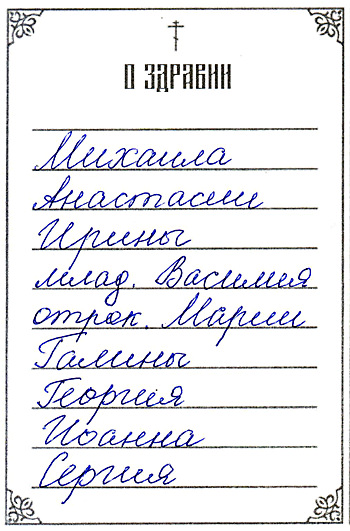 О ЗДРАВИИ
Михаила
Анастасии
Ирины
млад. Василия
отрок. Марии
Галины
Георгия
Иоанна
Сергия